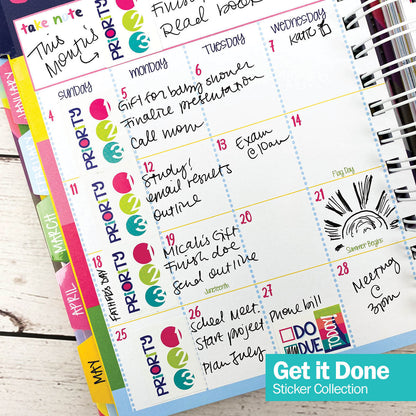 take note
This
Month is
PRIORITY
123
Finish
Read book
SUNDAY
MONDAY
TUESDAY
WEDNESDAY
7
Katie B
4
PRIORITY
123
5
Gift for baby shower
Finalize presentation
Call mom
6
11
PRIORITY
123
12
Study!
email results
outline
13
Exam
@ 10am
14
Flag Day
18
FATHER'S DAY
PRIORITY
123
19
Micah's Gift
Finish doc
Send outline
Juneteenth
20
21
Summer Begins
25
PRIORITY
123
26
School Meet
Start project
Plan July
27
Phone bill
DO
DUE
TODAY
28
Meeting
@
3pm
JANUARY
MARCH
APRIL
MAY
Get it Done
Sticker Collection